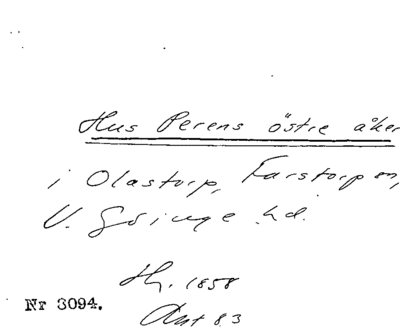 Hus Perens östre åker
i Olastorp, Farstorp sn,
V. Göinge hd.
Hy. 1858
Akt 83
Nr 3094.